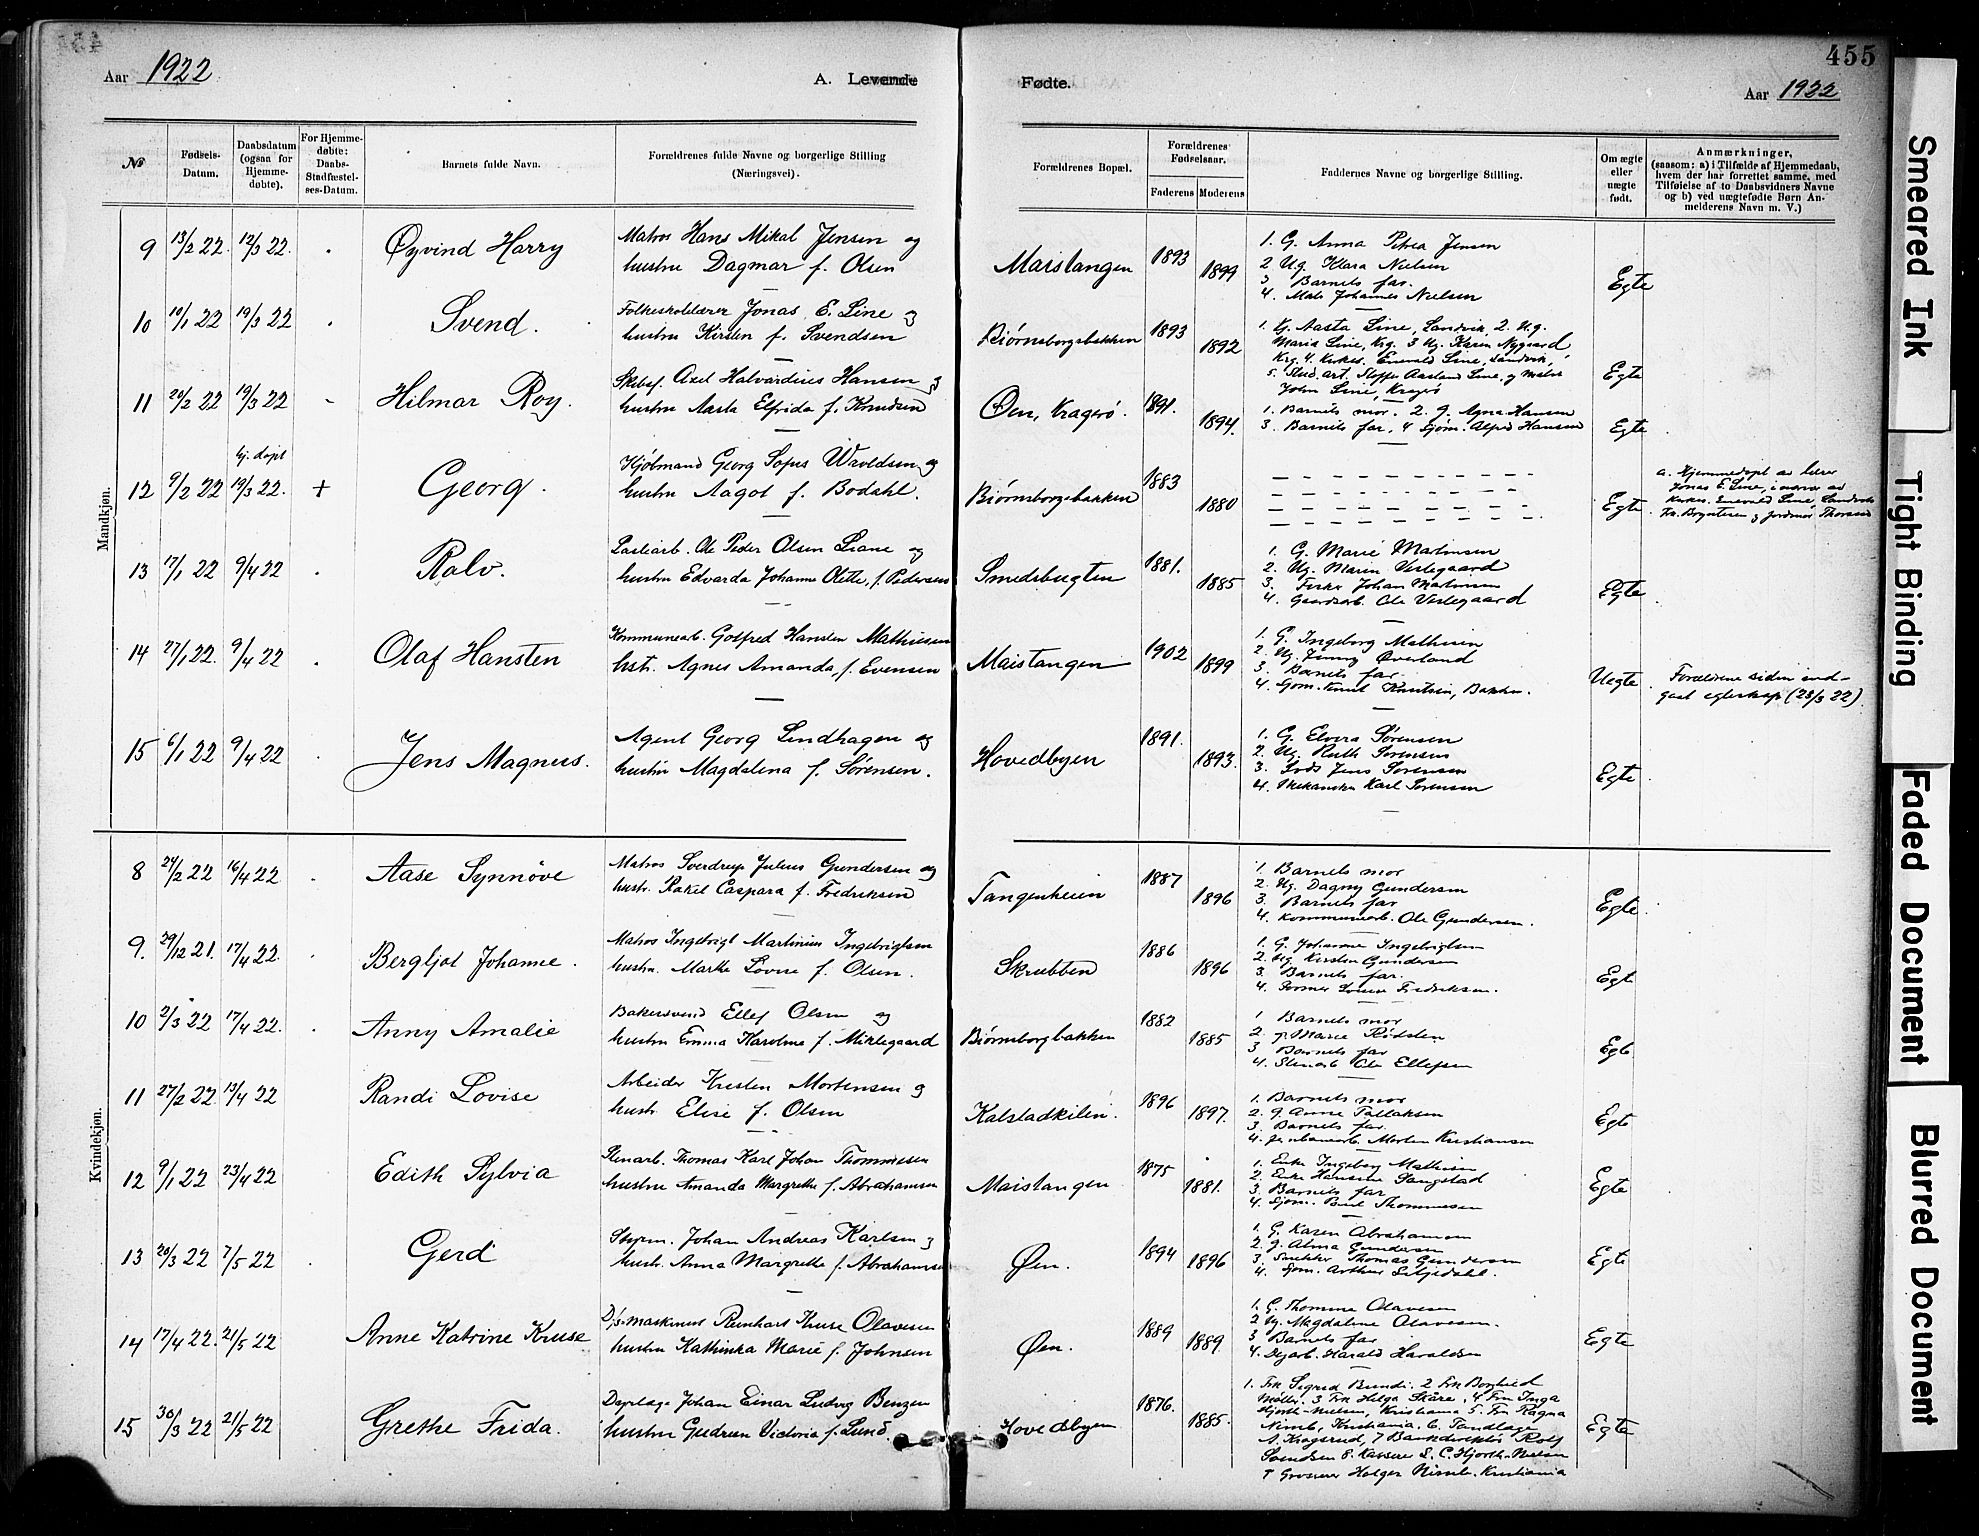 454
Aar 1922
A. Levende
№
Fødsels-Datum.
Daabsdatum (ogsaa for Hjemme-døbte).
For Hjemme-døbte: Daabs-Stadfæstel-ses-Datum.
Barnets fulde Navn.
Forældrenes fulde Navne og borgerlige Stilling (Næringsvei).
Mandkjøn.
9 13/2 22. 12/3 22. Øyvind Harry
Matros Hans Mikal Jensen og
hustru Dagmar f. Olsen
10 10/1 22 19/3 22 Svend.
Folkeskolelærer Jonas E. Line og
hustru Kirsten f. Svendsen
11 20/2 22 19/3 22 Hilmar Roy.
Skibsf. Axel Halvardius Hansen og
hustru Aasta Elfrida f. Knudsen
hj. døpt
12 9/2 22 19/3 22. + Georg.
Kjøbmand Georg Sofus Wroldsen og
hustru Aagot f. Bodahl.
13 17/1 22 9/4 22 Ralv.
Lastearb. Ole Peder Olsen Liane og
hustru Edvarda Johanne Olette, f. Pedersen
14 27/1 22. 9/4 22 Olaf Hansten
Kommunearb. Gotfred Hansten Mathisen
hstr. Agnes Amanda, f. Evensen
15 6/1 22 9/4 22 Jens Magnus.
Agent Georg Lindhagen og
hustru Magdalena f. Sørensen.
Kvindekjøn.
8 24/2 22 16/4 22 Aase Synnöve
Matros Sverdrup Julius Gundersen og
hustr. Rakel Caspara f. Fredriksen
9. 29/12 21. 17/4 22. Bergljot Johanne.
Matros Ingebrigt Martinius Ingebrigtsen
hustru. Marthe Lovise f. Olsen.
10 2/3 22 17/4 22. Anny Amalie
Bakersvend Ellef Olsen og
hustru Emma Karoline f. Miklegaard
11 27/2 22. 13/4 22 Randi Lovise
Arbeider Kristen Mortensen og
hustr. Elise f. Olsen
12 9/1 22 23/4 22 Edith Sylvia
Stenarb. Thomas Karl Johan Thommesen
hustru Amanda Margrethe f. Abrahamsen
13 20/3 22 7/5 22 Gerd
Styrm. Johan Andreas Karlsen og
hustr. Anna Margrethe f. Abrahamsen
14 17/4 22. 21/5 22 Anne Katrine Kruse
D/s. maskinist Reinhart Kruse Olavesen
hustru Kathinka Marie f. Johnsen
15 30/3 22 21/5 22 Grethe Frida.
Johan Einar Ludvig Benzen
hustru Gudrun Victoria f. Lund.
455
Fødte.
Aar 1922
Forældrenes Bopæl.
Forældrenes Fødselsaar.
Faderens Moderens
Faddernes Navne og borgerlige Stilling.
Om ægte eller uægte født.
Anmærkninger,
(saasom: a) i Tilfælde af Hjemmedaab,
hvem der har forrettet samme, med
Tilføielse af to Daabsvidners Navne
og b) ved uægtefødte Børn An-
melderens Navn m. V.)
Maistangen 1893 1899
1. G. Anna Petrea Jensen
2 Ug. Klara Nielsen
3 Barnets far.
4. Mats Johannes Nielsen
Egte
Biørnsborgsbakken 1893 1892
1. G. Aasta Line, Sandvik 2. Ug.
Maria Line, Krg. 3 Ug. Karen Nygaard
Krg. 4. Kirkes. Enevald Line, Sandvik,
5. Stud. art. Steffen Aasland Line, og
John Line, Kragerø
Egte
Øen, Kragerø. 1891. 1894.
1. Barnets mor. 2. g. Agna Hansen
3. Barnets far, 4 Sjøm. Alfred Hansen
Egte
Biørnsborgsbakken 1883 1880
Egte
a. Hjemmedøpt av lærer
Jonas E. Line, i nærvær av
Kirkes. Enevald Line, Sandvik
Fr. Bryntesen og Jordmor Thorsen
Smedsbugten 1881. 1885
1. G. Marie Martinsen
2. Ug. Marin Vestegaard
3. Fisker Johan Martinsen
4. Gaardsarb. Ole Vestegaard
Egte
Maistangen 1902 1899
1. G. Ingeborg Mathisen
2. Ug. Jenny Øverland
3. Barnets far.
4. Sjøm. Knut Knutsen, Bakken.
Uegte
Forældrene siden ind-
gaat egteskap (23/3 22)
Hovedbyen 1891. 1893.
1. G. Elvera Sørensen
2. Ug. Ruth Sørensen
3. Lods Jens Sørensen
4. Mekaniker Karl Sørensen
Egte
Tangenheien 1887 1896
1. Barnets mor
2. Ug. Dagny Gundersen
3. Barnets far
4. Kommunearb. Ole Gundersen.
Egte
Skrubben 1886 1896
1. G. Johanne Ingebrigtsen
2. Ug Kirsten Gundersen
3. Barnets far.
4. Fredriksen.
Egte
Biørnsborgbakken 1882 1885
1 Barnets mor
2. g. Marie Rødsten
3 Barnets far
4. Stenarb Ole Ellefsen
Egte
Kalstadkilen. 1896 1897.
1. Barnets mor
2. g. Anne Tallaksen
3. Barnets far.
4. Jernbanearb. Morten Kristiansen
Egte
Maistangen 1875 1881.
1. Enke Ingeborg Mathisen
2. Enke Hansine Sangstad
3. Barnets far
4. Sjøm. Thommesen
Egte
Øen. 1894 1896
1. G. Karen Abrahamsen
2. g. Alma Gundersen
3. Snekker Thomas Gundersen
4. Sjøm. Arthur Seljedahl.
Egte
Øen. 1889 1889.
1. G. Thomine Olavesen
2 Ug. Magdalene Olavesen.
3 Barnets far
4. Harald Haraldsen
Egte
Hovedbyen 1876. 1885.
1. Frk Sigrid Bundi. 2 Frk Borghild
Møller. 3 Frk Helga Skåre. 4. Fru Inga
Hjorth-Nielsen, Kristiania 5. Fru Ragna
Nirsb, Kristiania. 6. Tandlæge
A. Krogsrud, 7 Bankdirektør Rolf
Svendsen 8. Kasserer S. C. Hjorth-Nielsen
9 Grosserer Holger Nirsb. Kristiania
Egte
Smeared Ink
Tight Binding
Faded Document
Blurred Document